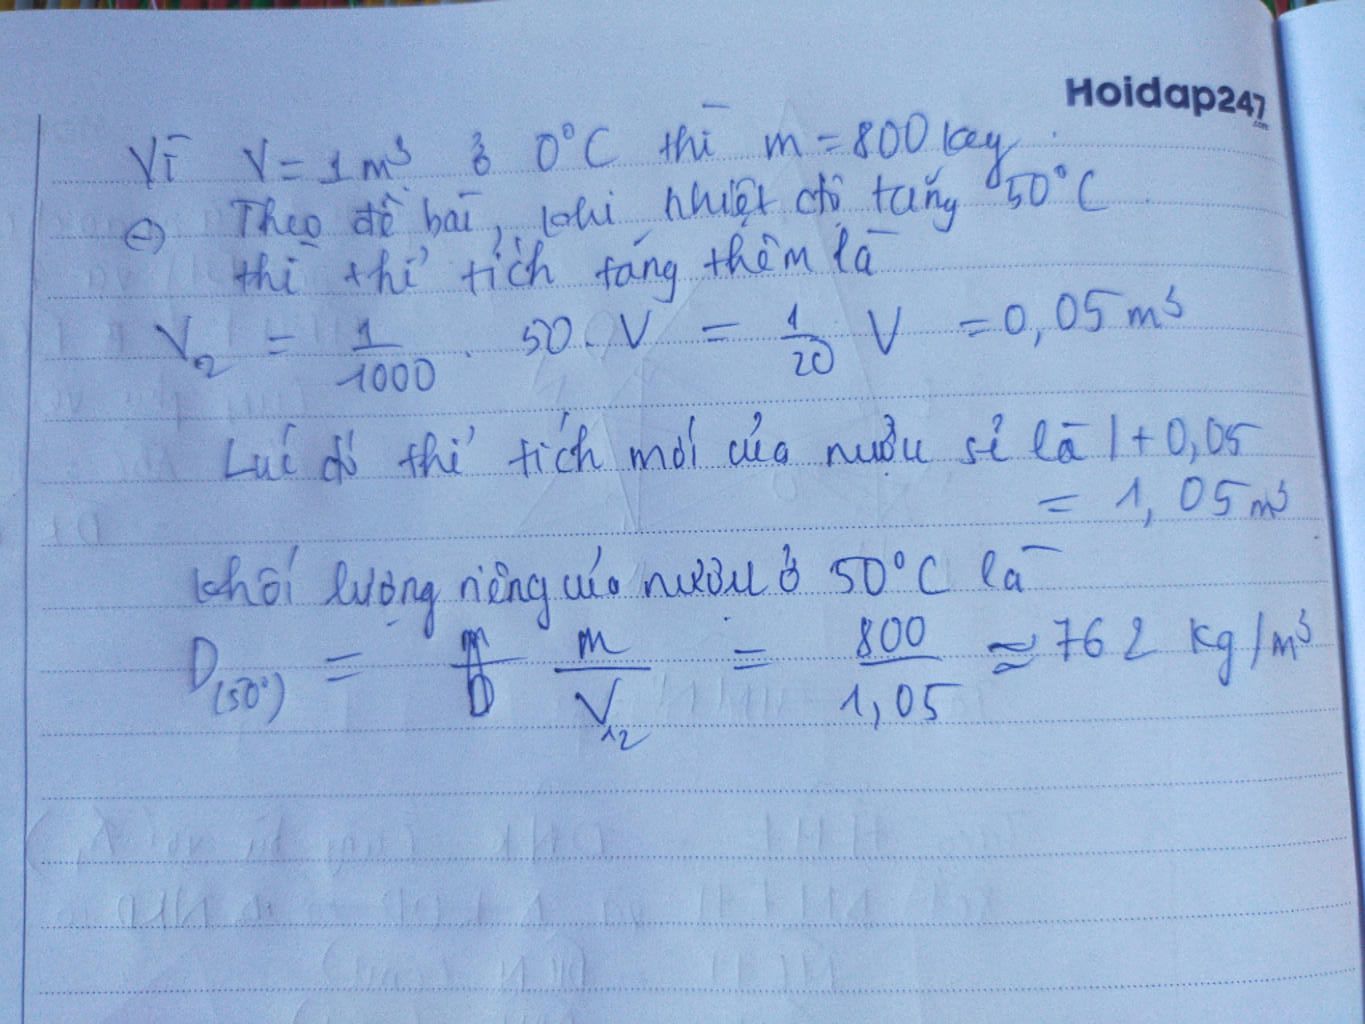 Hoidap247
.com
Vì V = 1 m³ ở 0°C thì m = 800 kg
⇒ Theo đề bài, khi nhiệt độ tăng 50°C
thì thể tích tăng thêm là
V₂ = 1/1000 . 50 . V = 1/20 V = 0,05 m³
Lúc đó thể tích mới của rượu sẽ là 1 + 0,05
= 1,05 m³
Khối lượng riêng của rượu ở 50°C là
D(50°) = m/V₁₂ = 800/1,05 ≈ 762 kg/m³